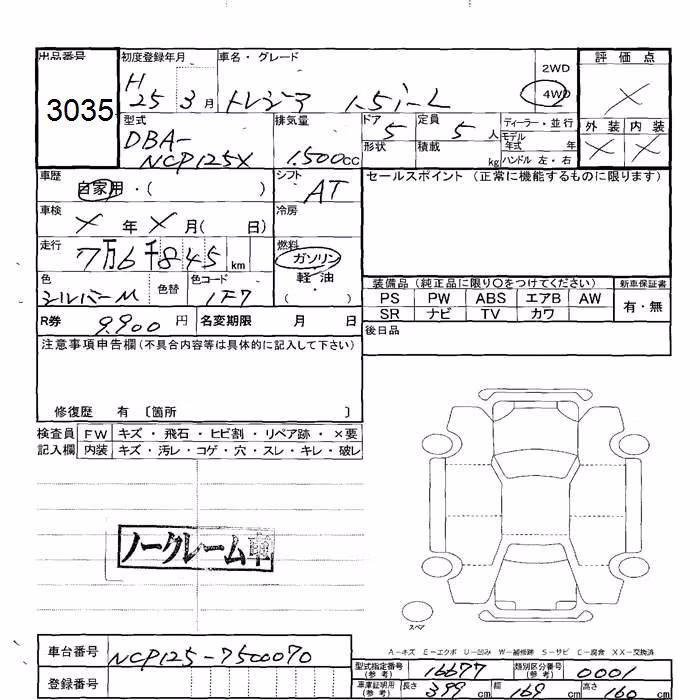 出品番号 初度登録年月 車名・グレード 2WD 評価点
3035 H 25 3月 トレジア 1.5i-L 4WD ×
型式 排気量 ドア 定員 ディーラー・並行 外装 内装
DBA- 5 5人 モデル年式 年 × ×
NCP125X 1.500cc 形状 積載 kg ハンドル 左・右
車歴 シフト セールスポイント (正常に機能するものに限ります)
自家用・( ) AT
車検 冷房
× 年 × 月( 日)
走行 燃料
7万6千845km ガソリン
色 色替 色コード 軽・油 装備品 (純正品に限り○をつけてください) 新車保証書
シルバーM 1F7 ( ) PS PW ABS エアB AW 有・無
R券 9.900円 名変期限 月 日 SR ナビ TV カワ
注意事項申告欄 (不具合内容等は具体的に記入して下さい) 後日品
修復歴 有 〔箇所 〕
検査員 FW キズ・飛石・ヒビ割・リペア跡・×要
記入欄 内装 キズ・汚レ・コゲ・穴・スレ・キレ・破レ
ノークレーム車
スペア
A-キズ E-エクボ U-凹み W-補修跡 S-サビ C-腐食 XX-交換済
車台番号 NCP125-7500070 型式指定番号(参考) 16677 類別区分番号(参考) 0001
登録番号 車庫証明用(参考) 長さ 399cm 幅 169cm 高さ 160cm